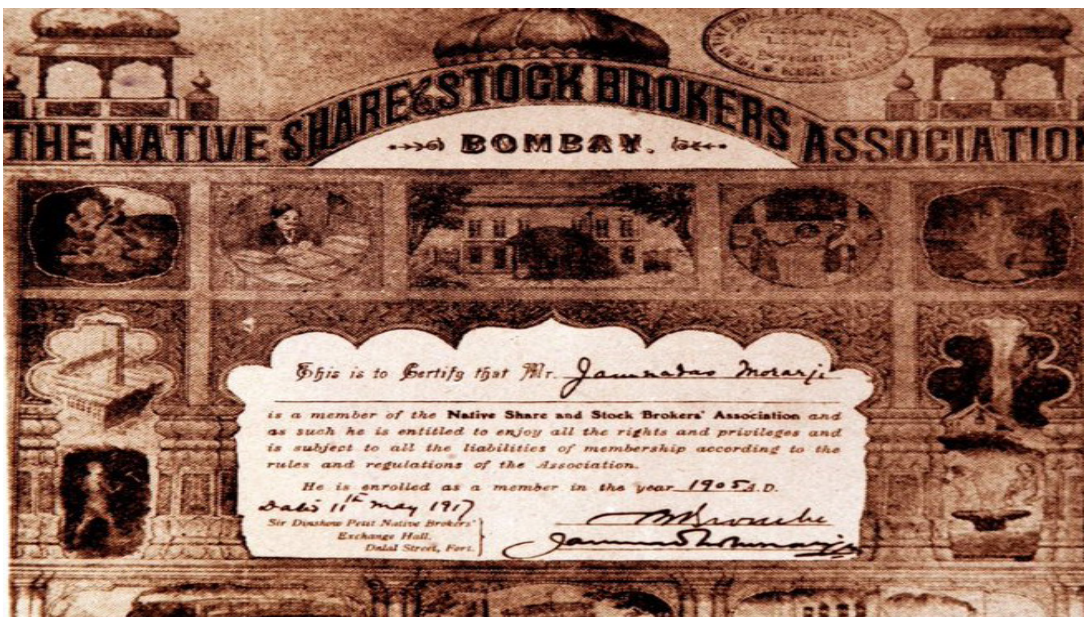 THE NATIVE SHARE & STOCK BROKERS ASSOCIATIO
BOMBAY.
This is to Certify that Mr. Jamnadas Morarji
is a member of the Native Share and Stock Brokers' Association and
as such he is entitled to enjoy all the rights and privileges and
is subject to all the liabilities of membership according to the
rules and regulations of the Association.
He is enrolled as a member in the year 1905 A.D.
Date 11th May 1917
Sir Dinshaw Petit Native Brokers'
Exchange Hall.
Dalal Street, Fort.